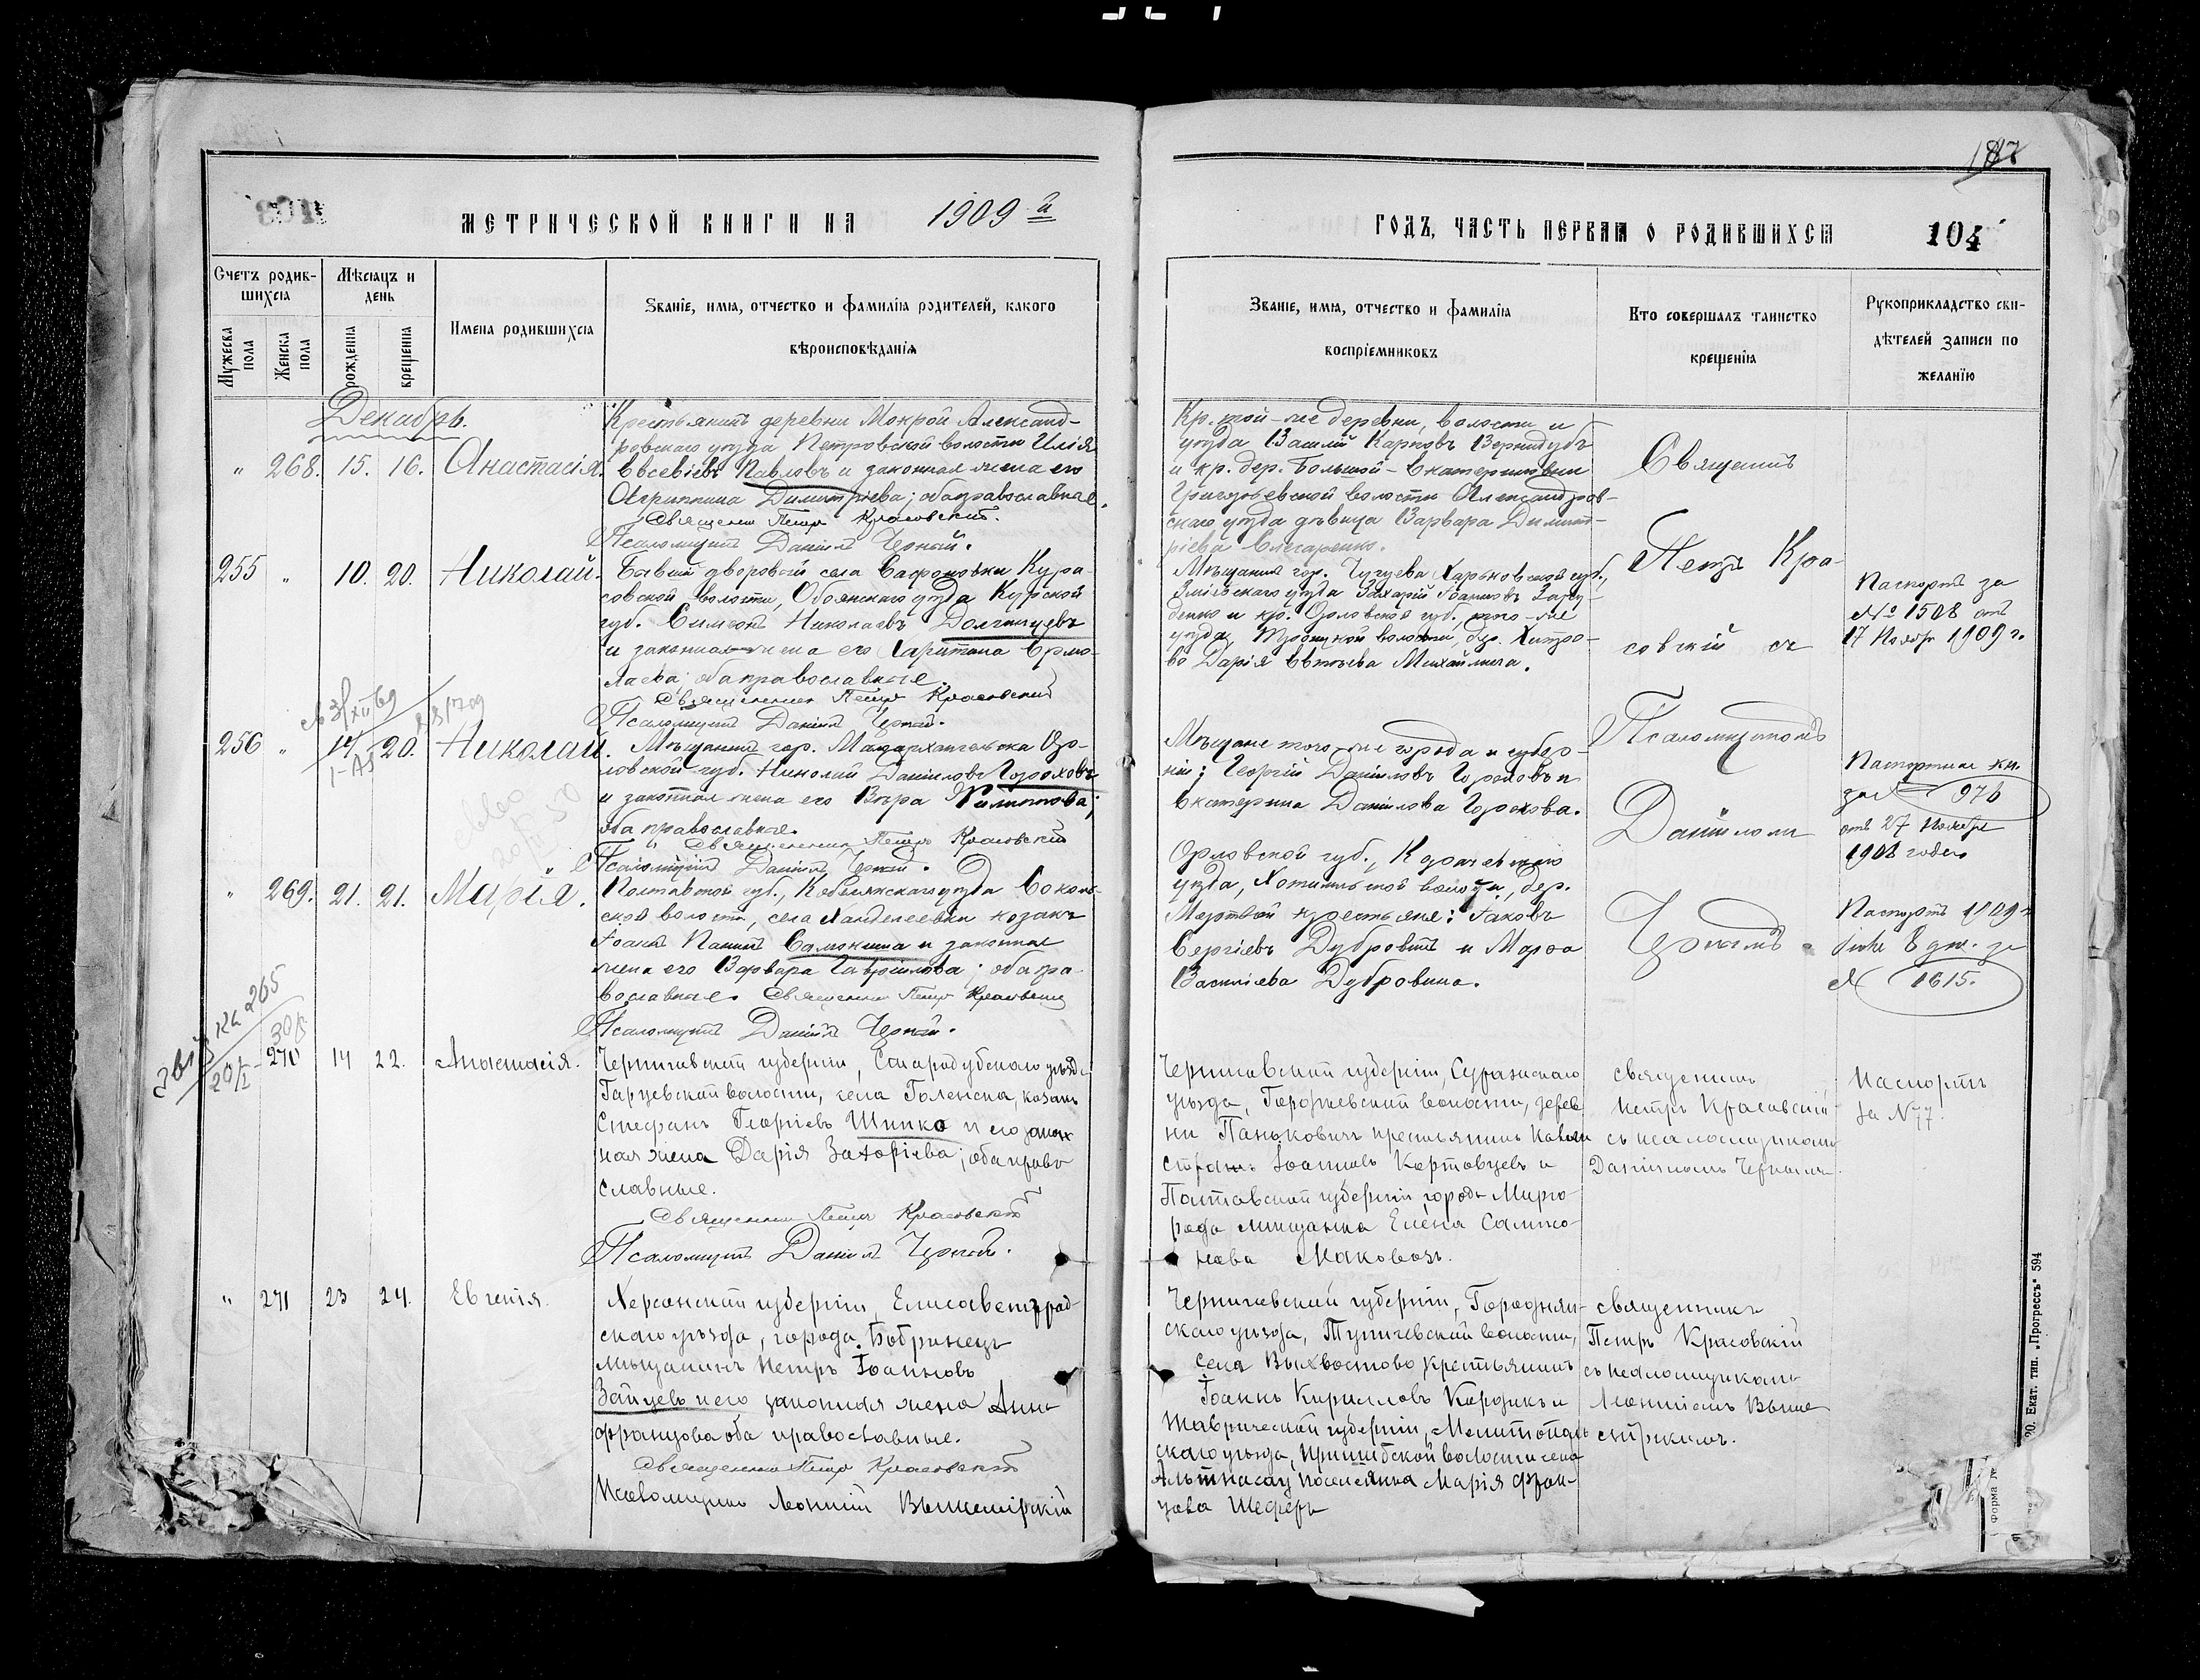 187
МЕТРИЧЕСКОЙ КНИГИ НА 1909 й
ГОДЪ, ЧАСТЬ ПЕРВАЯ О РОДИВШИХСЯ 104
Счетъ родив-
шихся
Мужеска пола
Женска пола
Мѣсяцъ и
день
рожденія
крещенія
Имена родившихся
Званіе, имя, отчество и фамилія родителей, какого
вѣроисповѣданія
Званіе, имя, отчество и фамилія
воспріемниковъ
Кто совершалъ таинство
крещенія
Рукоприкладство сви-
дѣтелей записи по
желанію
Декабрь.
" 268. 15. 16. Анастасія.
Крестьянинъ деревни Мокрой Александ-
ровскаго уѣзда Петровской волости Илія
Евсевіевъ Павловъ и законная жена его
Агриппина Димитріева; оба православные.
Священникъ Петръ Красовскій.
Псаломщикъ Даніилъ Черный.
Кр. той-же деревни, волости и
уѣзда Василій Карповъ Вернидубъ
и кр. дер. Большой-Екатериновки
Григорьевской волости Александров-
скаго уѣзда дѣвица Варвара Димит-
ріева Слесаренко.
Священникъ
Петръ Кра-
совскій съ
Псаломщикомъ
Даніиломъ
Чернымъ.
255 " 10. 20. Николай.
Бывшій дворовый села Сафоновки Кура-
совской волости, Обоянскаго уѣзда Курской
губ. Симеонъ Николаевъ Долженцевъ
и законная жена его Харитина Ермо-
лаева; оба православные.
Священникъ Петръ Красовскій
Псаломщикъ Даніилъ Черный.
Мѣщанинъ гор. Чугуева Харьковской губ.,
Зміевскаго уѣзда Захарій Іоанновъ
и кр. Орловской губ., того-же
уѣзда, Троицкой волости, дер. Хитро-
во Дарія Евтѣева Михайлина.
Паспортъ за
№ 1508 отъ
17 Ноября 1909 г.
256 " 14 20. Николай.
Мѣщанинъ гор. Малоархангельска Ор-
ловской губ. Николай Даніиловъ Гороховъ
и законная жена его Вѣра Филиппова;
оба православные.
Священникъ Петръ Красовскій
Псаломщикъ Даніилъ Черный.
Мѣщане того-же города и губер-
ніи: Георгій Даніиловъ Гороховъ и
Екатерина Даніилова Горохова.
Паспортная кн.
за № 976
отъ 27 Ноября
1908 года
" 269. 21. 21. Марія.
Полтавской губ., Кобелякскаго уѣзда Соколь-
ской волости, села Ханделеевки козакъ
Іоаннъ Самокиша и законная
жена его Варвара Гавріилова; оба пра-
вославные. Священникъ Петръ Красовскій
Псаломщикъ Даніилъ Черный.
Орловской губ., Карачевскаго
уѣзда, Хотынской волости, дер.
Мертвой крестьяне: Іаковъ
Сергіевъ Дубровинъ и Марѳа
Василіева Дубровина.
Паспортъ 1909 г.
за
№ 1615.
" 270 14 22. Анастасія.
Черниговской губерніи, Стародубскаго уѣзда
Гарцевской волости, села Голенска, козакъ
Стефанъ Георгіевъ Шипко и его закон
ная жена Дарія Захаріева; оба право
славные.
Священникъ Петръ Красовскій
Псаломщикъ Даніилъ Черный.
Черниговской губерніи, Суражскаго
уѣзда, волости, дерев
ни Паньковичъ крестьянинъ
Іоанновъ Картовцевъ и
Полтавской губерніи города Мирго
рода мѣщанка Елена Сампсо-
нова Маковозъ.
священникъ
Петръ Красовскій
съ псаломщикомъ
Даніиломъ Чернымъ.
Паспортъ
за №77.
" 271 23 24. Евгенія.
Херсонской губерніи, Елисаветград-
скаго уѣзда, города Бобринецъ
мѣщанинъ Петръ Іоанновъ
Зайцевъ и его законная жена Анна
Францова оба православные.
Священникъ Петръ Красовскій
Псаломщикъ Леонтій Вышемірскій
Черниговской губерніи, Городнян-
скаго уѣзда, Тупичевской волости,
села Выхвостово крестьянинъ
Іоаннъ Кирилловъ Кордикъ и
Таврической губерніи, Мелитополь
скаго уѣзда, Пришибской волости села
Альтнасау поселянка Марія Фран-
цова Шеферъ
священникъ
Петръ Красовскій
съ псаломщикомъ
Леонтіемъ Выше
мірскимъ.
20. Екат. тип. „Прогрессъ“ 594